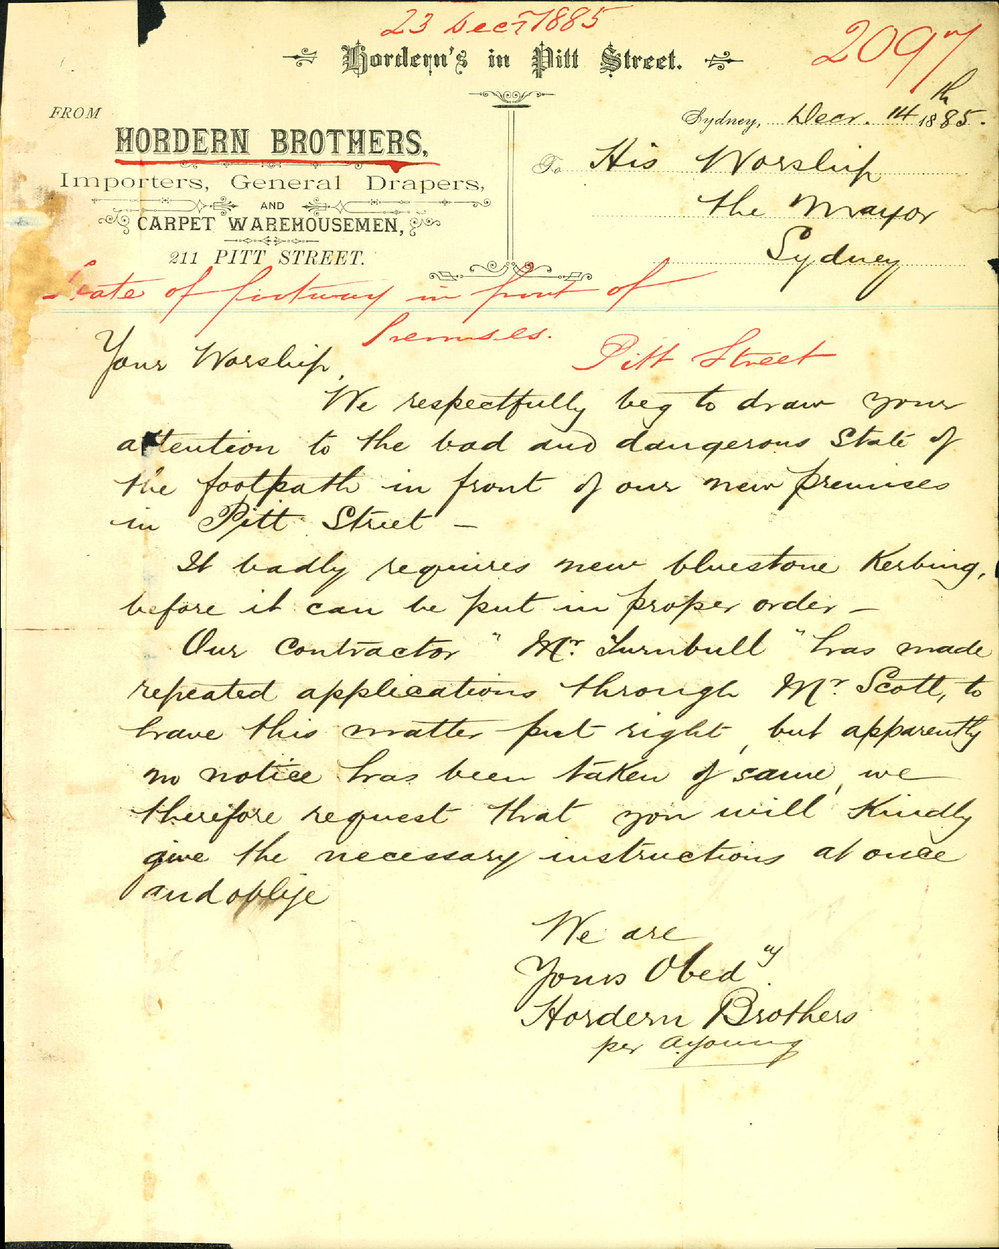 23 Decr 1885
2097
Hordern's in Pitt Street.
FROM
HORDERN BROTHERS,
Importers, General Drapers,
AND
CARPET WAREHOUSEMEN,
211 PITT STREET.
Sydney, Decr. 14th 1885.
To His Worship
the Mayor
Sydney
State of footway in front of
Premises. Pitt Street
Your Worship,
We respectfully beg to draw your
attention to the bad and dangerous state of
the footpath in front of our new premises
in Pitt Street –
It badly requires new bluestone Kerbing,
before it can be put in proper order –
Our Contractor "Mr. Turnbull" has made
repeated applications through Mr Scott, to
have this matter put right, but apparently
no notice has been taken of same, we
therefore request that you will Kindly
give the necessary instructions at once
and oblige
We are
Yours Obedy
Hordern Brothers
per A. Young